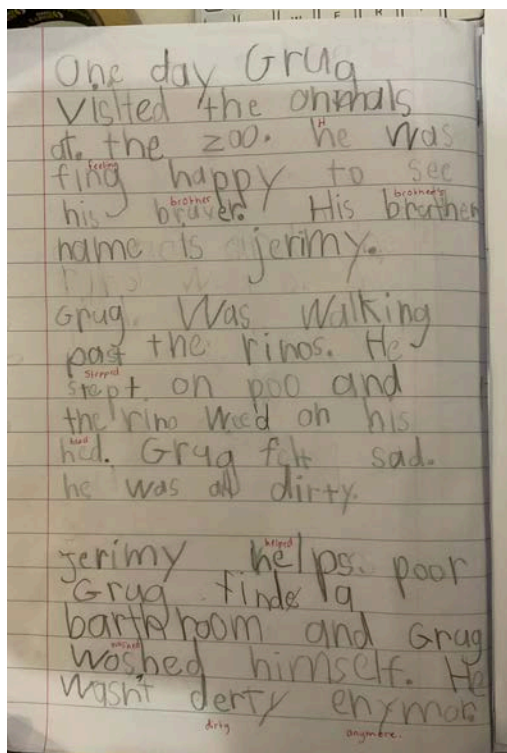 One day Grug
visited the animals
at the zoo. he was
H
feeling
fing happy to see
brother
brother's
his bruver. His brother
name is jerimy.
Grug Was Walking
past the rinos. He
stepped
stept on poo and
the rino wee'd on his
head
hed. Grug felt sad.
he was all dirty.
helped
jerimy helps poor
Grug finde a
barthroom and Grug
washed
woshed himself. He
wasn't derty enymor.
dirty
anymore.